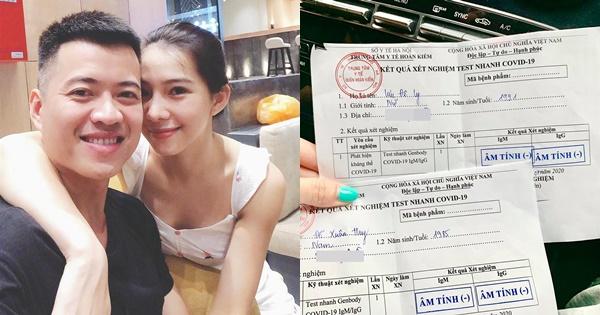 SỞ Y TẾ HÀ NỘI
TRUNG TÂM Y TẾ HOÀN KIẾM
CỘNG HÒA XÃ HỘI CHỦ NGHĨA VIỆT NAM
Độc lập - Tự do - Hạnh phúc
TRUNG TÂM
Y TẾ
KẾT QUẢ XÉT NGHIỆM TEST NHANH COVID-19
Mã bệnh phẩm:
Họ và tên:
1.1 Giới tính: Nữ 1.2 Năm sinh/Tuổi: 1991
1.3 Địa chỉ:
2. Kết quả xét nghiệm
TT Yêu cầu xét nghiệm Kỹ thuật xét nghiệm Lần XN Ngày làm XN Kết quả Xét nghiệm
IgM IgG
1 Phát hiện kháng thể COVID-19 Test nhanh Genbody COVID-19 IgM/IgG 1 ÂM TÍNH (-) ÂM TÍNH (-)
năm 2020
CỘNG HÒA XÃ HỘI CHỦ NGHĨA VIỆT NAM
Độc lập - Tự do - Hạnh phúc
KẾT QUẢ XÉT NGHIỆM TEST NHANH COVID-19
Mã bệnh phẩm:
Xuân
Nam 1.2 Năm sinh/Tuổi: 1985
nghiệm
Kỹ thuật xét nghiệm Lần XN Ngày làm XN Kết quả Xét nghiệm
IgM IgG
Test nhanh Genbody COVID-19 IgM/IgG 1 ÂM TÍNH (-) ÂM TÍNH (-)
2020